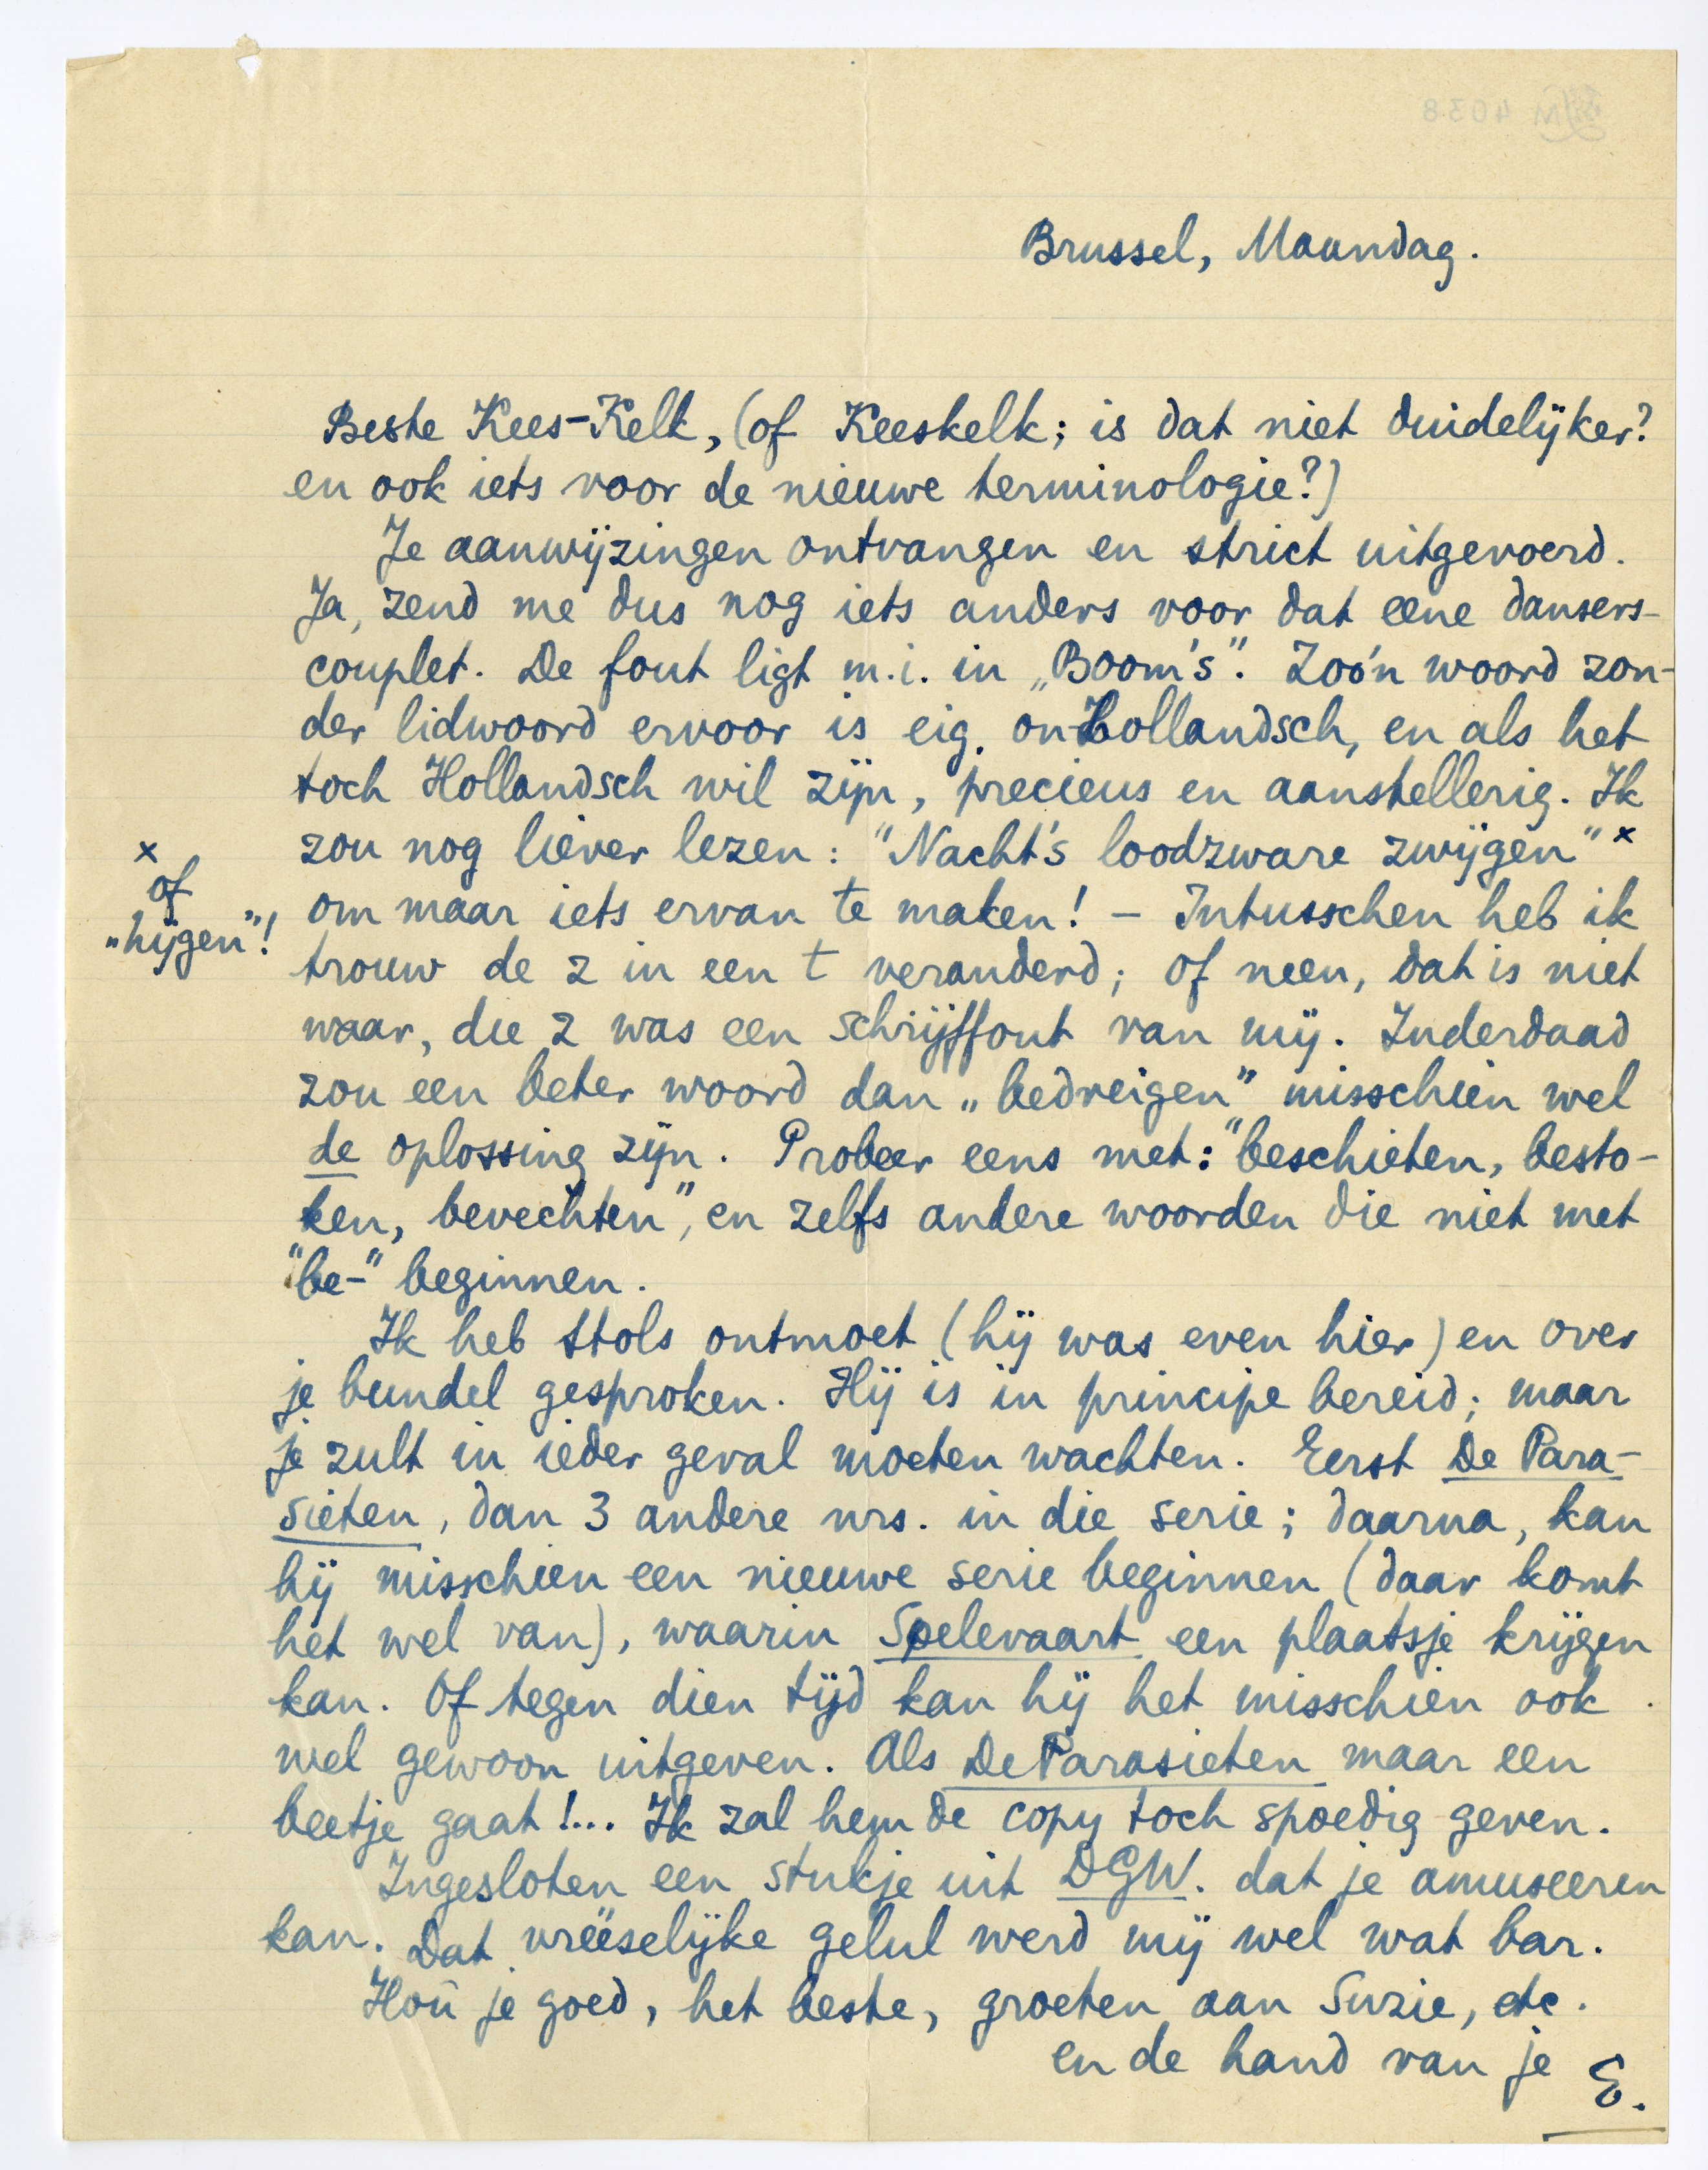 Brussel, Maandag.
Beste Kees-Kelk, (of Keeskelk; is dat niet duidelijker?
en ook iets voor de nieuwe terminologie?)
Je aanwijzingen ontvangen en strict uitgevoerd.
Ja, zend me dus nog iets anders voor dat eene dansers-
couplet. De fout ligt m.i. in „Boom's". Zoo'n woord zon-
der lidwoord ervoor is eig. onHollandsch, en als het
toch Hollandsch wil zijn, precieus en aanstellerig. Ik
zou nog liever lezen: "Nacht's loodzware zwijgen" x
om maar iets ervan te maken! — Intusschen heb ik
trouw de z in een t veranderd; of neen, dat is niet
waar, die z was een schrijffout van mij. Inderdaad
zou een beter woord dan „bedreigen" misschien wel
de oplossing zijn. Probeer eens met: "beschieten, besto-
ken, bevechten", en zelfs andere woorden die niet met
"be-" beginnen.
Ik heb Stols ontmoet (hij was even hier) en over
je bundel gesproken. Hij is in principe bereid; maar
je zult in ieder geval moeten wachten. Eerst De Para-
sieten, dan 3 andere nrs. in die serie; daarna, kan
hij misschien een nieuwe serie beginnen (daar komt
het wel van), waarin Spelevaart een plaatsje krijgen
kan. Of tegen dien tijd kan hij het misschien ook
wel gewoon uitgeven. Als De Parasieten maar een
beetje gaat!... Ik zal hem de copy toch spoedig geven.
Ingesloten een stukje uit DGW. dat je amuseeren
kan. Dat vreëselijke gelul werd mij wel wat bar.
Hou je goed, het beste, groeten aan Suzie, etc.
en de hand van je
E.
x
of
„hijgen"!
4038